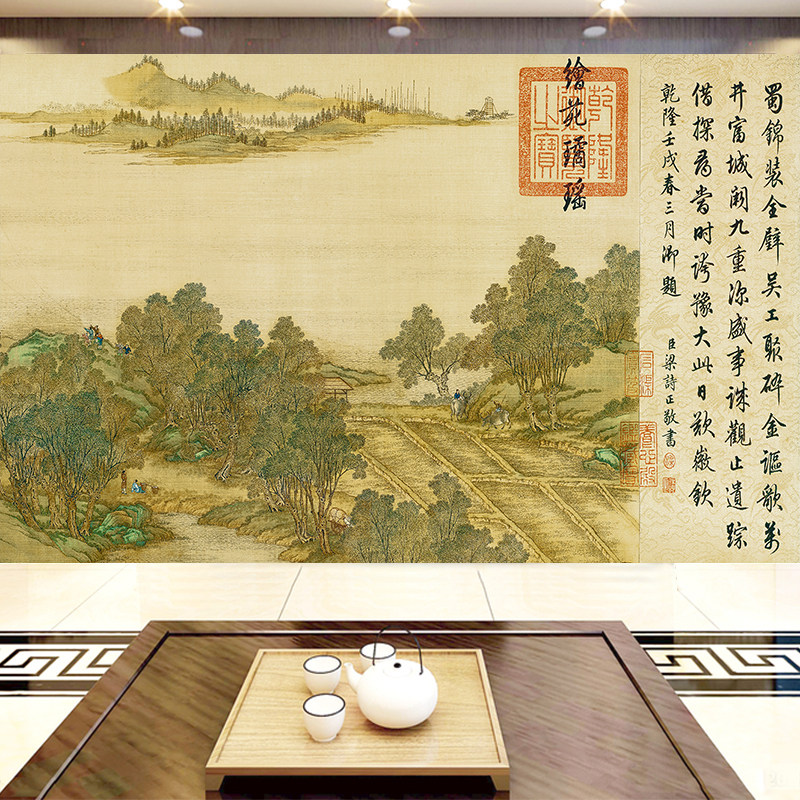 蜀錦裝全璧吳工聚碎金謳歌萬
井富城闕九重深盛事誠觀止遺踪
借探尋當時誇豫大此日歎徽欽
乾隆壬戌春三月御題
臣梁詩正敬書
繪苑璚瑤
乾隆御覽之寶